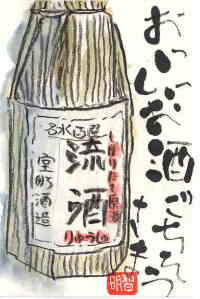 おいしいお酒ごちそう
さま
名水百選
しぼりたて原酒
流酒
りゅうしゅ
室町酒造